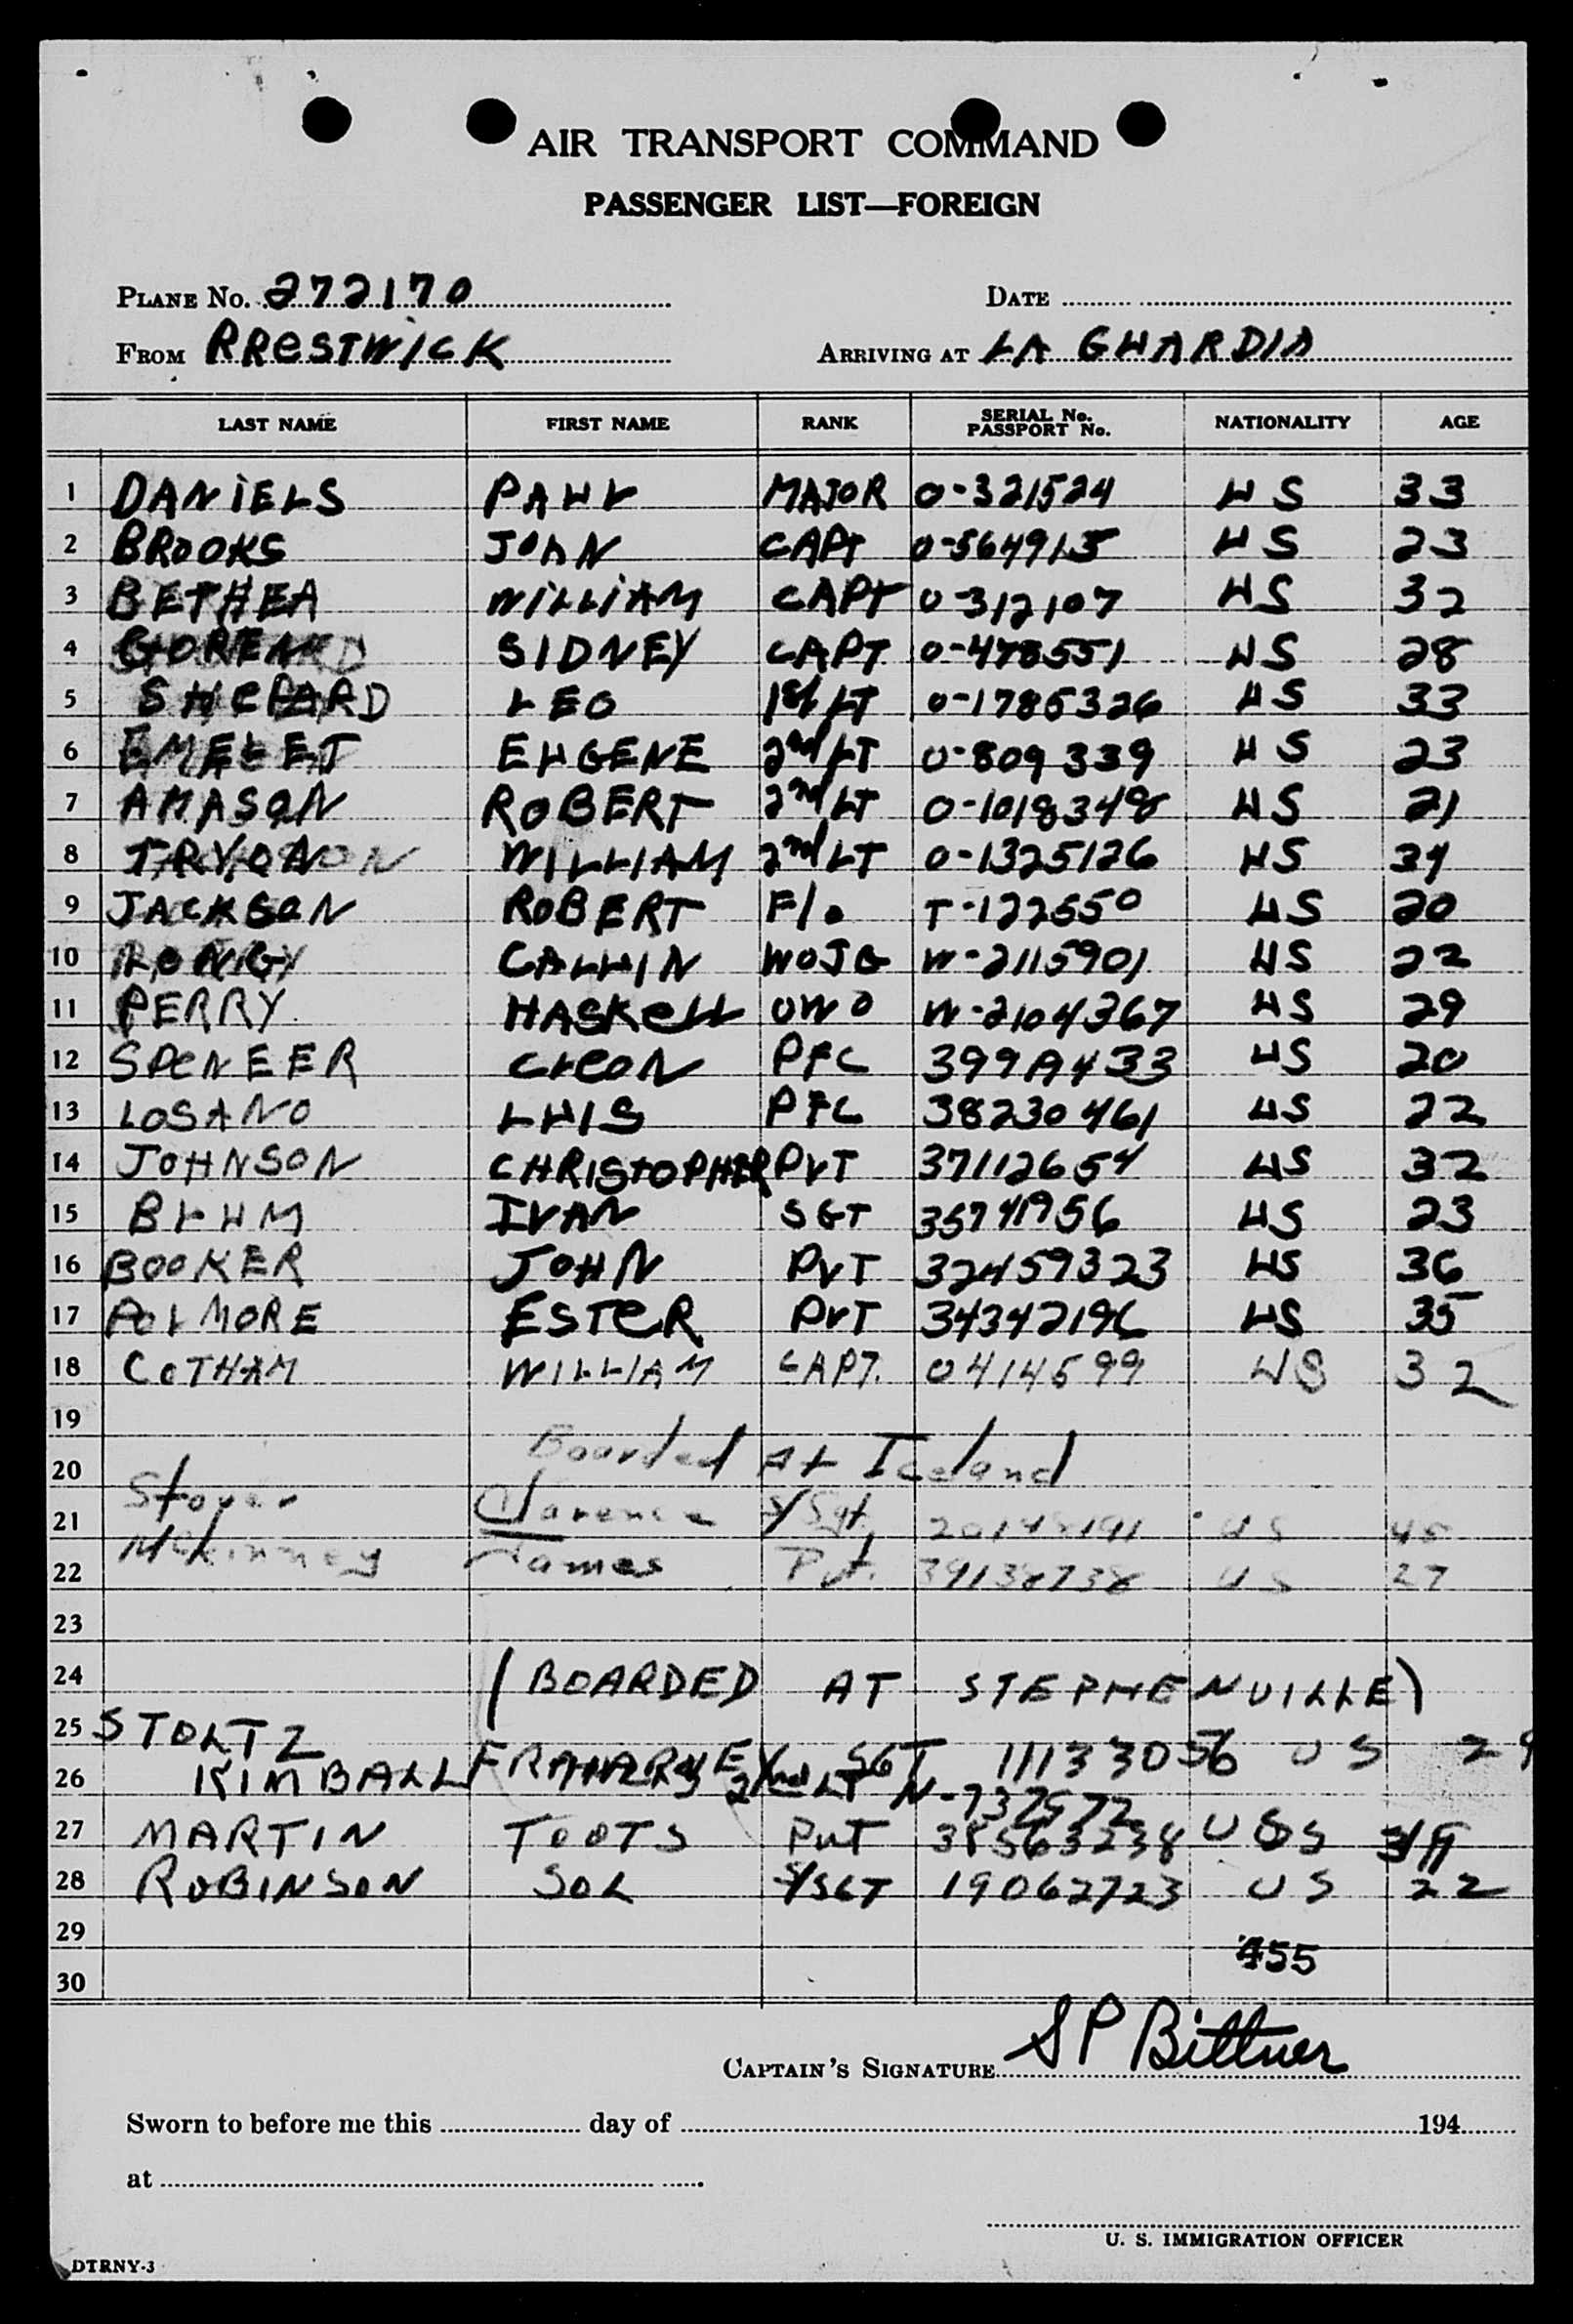 AIR TRANSPORT COMMAND
PASSENGER LIST—FOREIGN
PLANE No. 272170 DATE
FROM PRESTWICK ARRIVING AT LA GUARDIA
LAST NAME FIRST NAME RANK SERIAL No. PASSPORT No. NATIONALITY AGE
1 DANIELS PAUL MAJOR 0-321524 US 33
2 BROOKS JOHN CAPT 0-564915 US 23
3 BETHEA WILLIAM CAPT 0-312107 US 32
4 SIDNEY CAPT 0-478551 US 28
5 SHEPARD LEO 1st LT 0-1785326 US 33
6 EUGENE 2nd LT 0-809339 US 23
7 AMASON ROBERT 2nd LT 0-1018348 US 21
8 TRYON WILLIAM 2nd LT 0-1325126 US
9 JACKSON ROBERT F/O T-122550 US 20
10 CALVIN WOJG W-2115901 US 22
11 PERRY HASKELL W-2104367 US 29
12 SPENEER CLEON PFC US 20
13 LOSANO LUIS PFC 38230461 US 22
14 JOHNSON CHRISTOPHER PVT 37112654 US 32
15 BLUM IVAN SGT 35741956 US 23
16 BOOKER JOHN PVT 32459323 US 36
17 POLMORE ESTER PVT 34342196 US 35
18 COTHAM WILLIAM CAPT. 0414599 US 32
19
20 Boarded At Iceland
21 Stover Clarence S/Sgt. 20148191 US 45
22 McKinney James Pvt. 39138738 US 27
23
24 (BOARDED AT STEPHENVILLE)
25 STOLTZ SGT 11133056 US 29
26 KIMBALL 2nd LT N-732572
27 MARTIN TOOTS PVT 38563238 US
28 ROBINSON SOL S/SGT 19062723 US 22
29
455
30
CAPTAIN'S SIGNATURE S P Bittner
Sworn to before me this day of 194
at
U. S. IMMIGRATION OFFICER
DTRNY-3